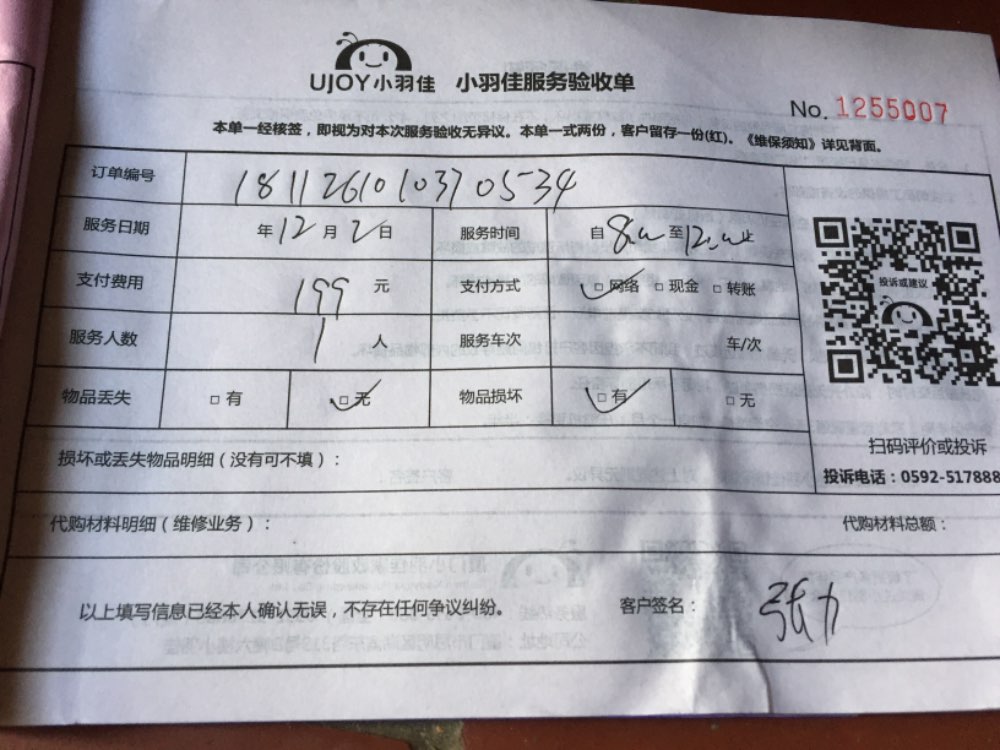 UJOY小羽佳 小羽佳服务验收单
No. 1255007
本单一经核签，即视为对本次服务验收无异议。本单一式两份，客户留存一份(红)。《维保须知》详见背面。
订单编号 181126101037 0534
服务日期 年12月2日 服务时间 自8:00至12:00止
支付费用 199 元 支付方式 □网络 □现金 □转账
服务人数 1 人 服务车次 车/次
物品丢失 □有 □无 物品损坏 □有 □无
投诉或建议
扫码评价或投诉
投诉电话：0592-517888
损坏或丢失物品明细（没有可不填）：
代购材料明细（维修业务）： 代购材料总额：
以上填写信息已经本人确认无误，不存在任何争议纠纷。 客户签名： 张力